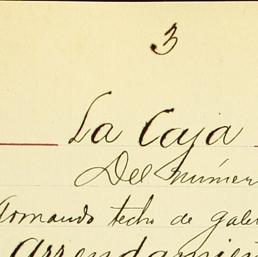 3
La Caja
Del númer
tomando techo de gale
Arrendamien